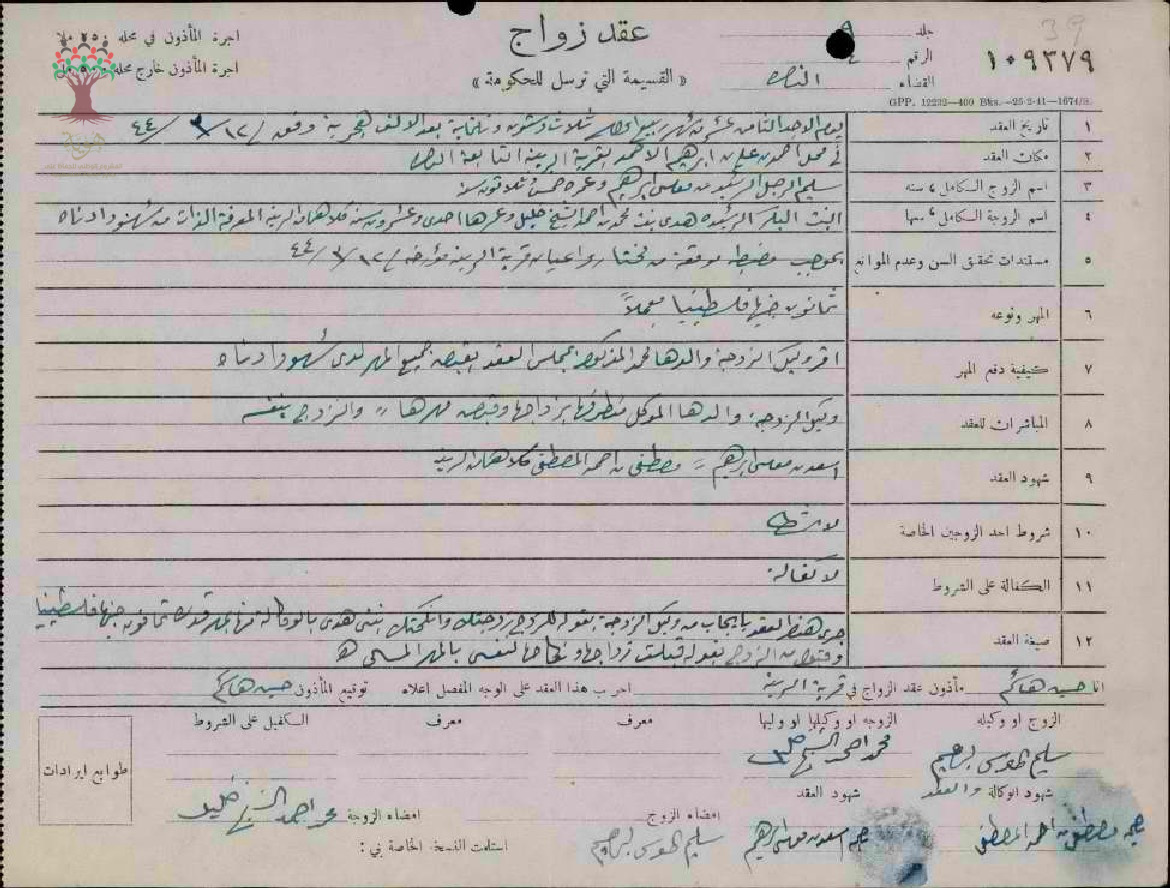 عقد زواج
« القسيمة التي ترسل للحكومة »
اجرة المأذون في محله
اجرة المأذون خارج محله
جلد
الرقم
القضاء الناصره
39
١٠٩٣٧٩
GPP. 12232—400 Bks.—25-2-41—1674/S.
١ تاريخ العقد يوم الاحد الثامن عشر من شهر ربيع ثلاث وستون وثلثماية بعد الالف هجرية وفق ١٢/٣/٤٤
٢ مكان العقد في محل احمد بن علي بن ابرهيم الاحمد بقرية الرينه التابعة الناصره
٣ اسم الزوج الكامل ، سنه سليم الرجل الرشيد بن موسى ابرهيم وعمره خمس وثلاثون سنه
٤ اسم الزوجة الكامل ، سنها البنت البكر الرشيده هدى بنت محمد بن احمد الشيخ خليل وعمرها احدى وعشرون سنه كلاهما من الرينه المعرفة الذات من شهود ادناه
٥ مستندات تحقق السن وعدم الموانع بموجب مضبطه موقعة من مختار واعيان قرية الرينه مؤرخه ١٢/٣/٤٤
٦ المهر ونوعه ثمانون جنيها فلسطينيا معجلاً
٧ كيفية دفع المهر اقر وكيل الزوجة والدها محمد المذكور بمجلس العقد بقبضه جميع المهر لدى شهود ادناه
٨ المباشران للعقد وكيل الزوجة والدها الموكل من طرفها بزواجها وقبض مهرها والزوج بنفسه
٩ شهود العقد اسعد بن موسى ابرهيم مصطفى بن احمد المصطفى كلاهما من الرينه
١٠ شروط احد الزوجين الخاصة لا شرط
١١ الكفالة على الشروط لا كفالة
١٢ صيغة العقد جرى هذا العقد بايجاب من وكيل الزوجة بقوله للزوج زوجتك وانكحتك بنتي هدى بالوكالة عنها بمهر قدره ثمانون جنيها فلسطينيا
وقبول من الزوج بقوله قبلت زواجها ونكاحها لنفسي بالمهر المسمى
انا حسين هاكم مأذون عقد الزواج في قرية الرينة اجريت هذا العقد على الوجه المفصل اعلاه توقيع المأذون حسين هاكم
الزوج او وكيله الزوجه او وكيلها او وليها معرف معرف الكفيل على الشروط
سليم الموسى ابراهيم محمد احمد الشيخ خليل
طوابع ايرادات
شهود الوكالة والعقد شهود العقد
امضاء الزوج امضاء الزوجة محمد احمد الشيخ خليل
بصمة مصطفى بن احمد المصطفى بصمة اسعد بن موسى ابرهيم سليم الموسى ابراهيم
استلمت النسخة الخاصة بي :